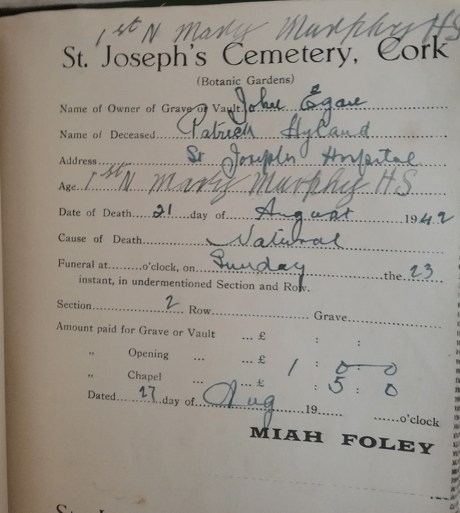 1st N Mary Murphy HS
St. Joseph's Cemetery, Cork
(Botanic Gardens)
Name of Owner of Grave or Vault John Egan
Name of Deceased Patrick Hyland
Address St Josephs Hospital
Age 1st N Mary Murphy HS
Date of Death 21 day of August 1942
Cause of Death Natural
Funeral at ........ o'clock, on Sunday the 23
instant, in undermentioned Section and Row.
Section 2 Row Grave
Amount paid for Grave or Vault ... £ : :
„ Opening ... ... £ 1 : 0 : 0
„ Chapel ... ... £ : 5 : 0
Dated 27 day of Aug 19 ...... o'clock
MIAH FOLEY